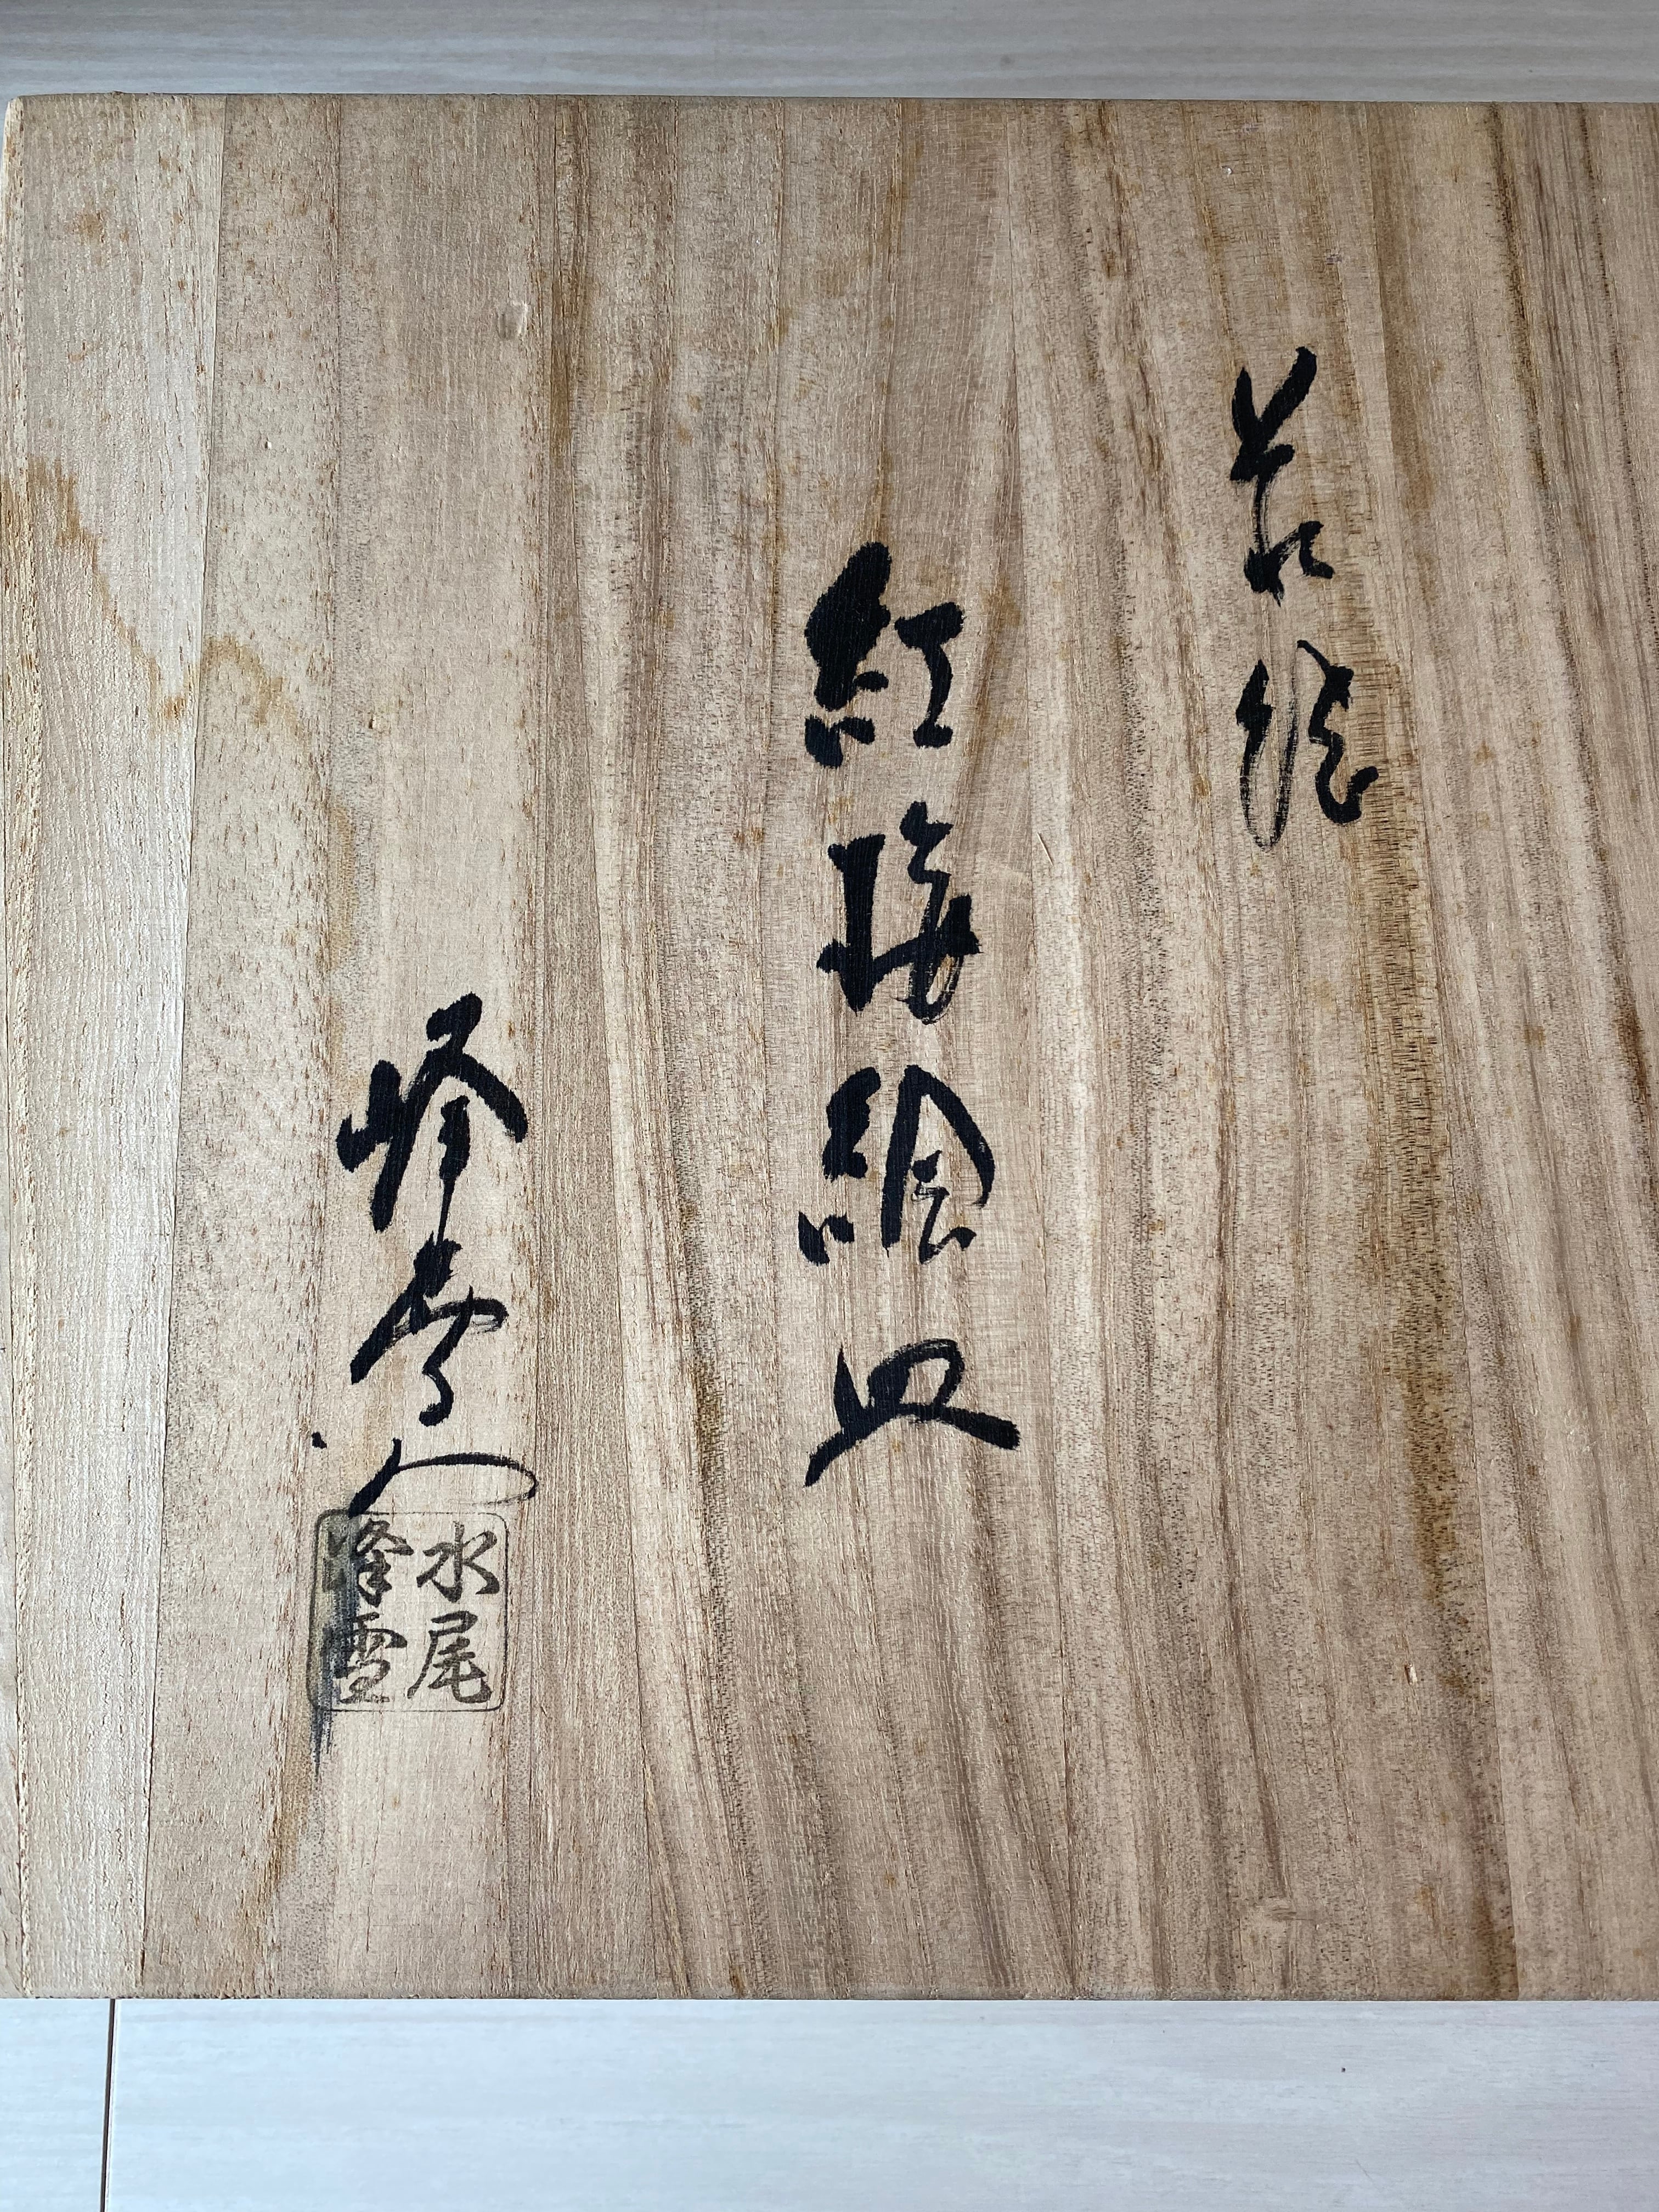 紅梅絵皿
峰雪
水尾
峰雪